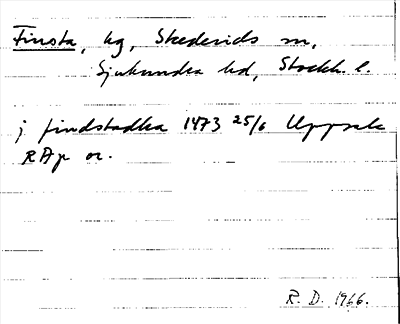 Finsta, hg, Skederids sn,
Sjuhundra hd, Stockh. l.
j findstadha 1473 25/6 Uppsala
RAp or.
R. D. 1966.